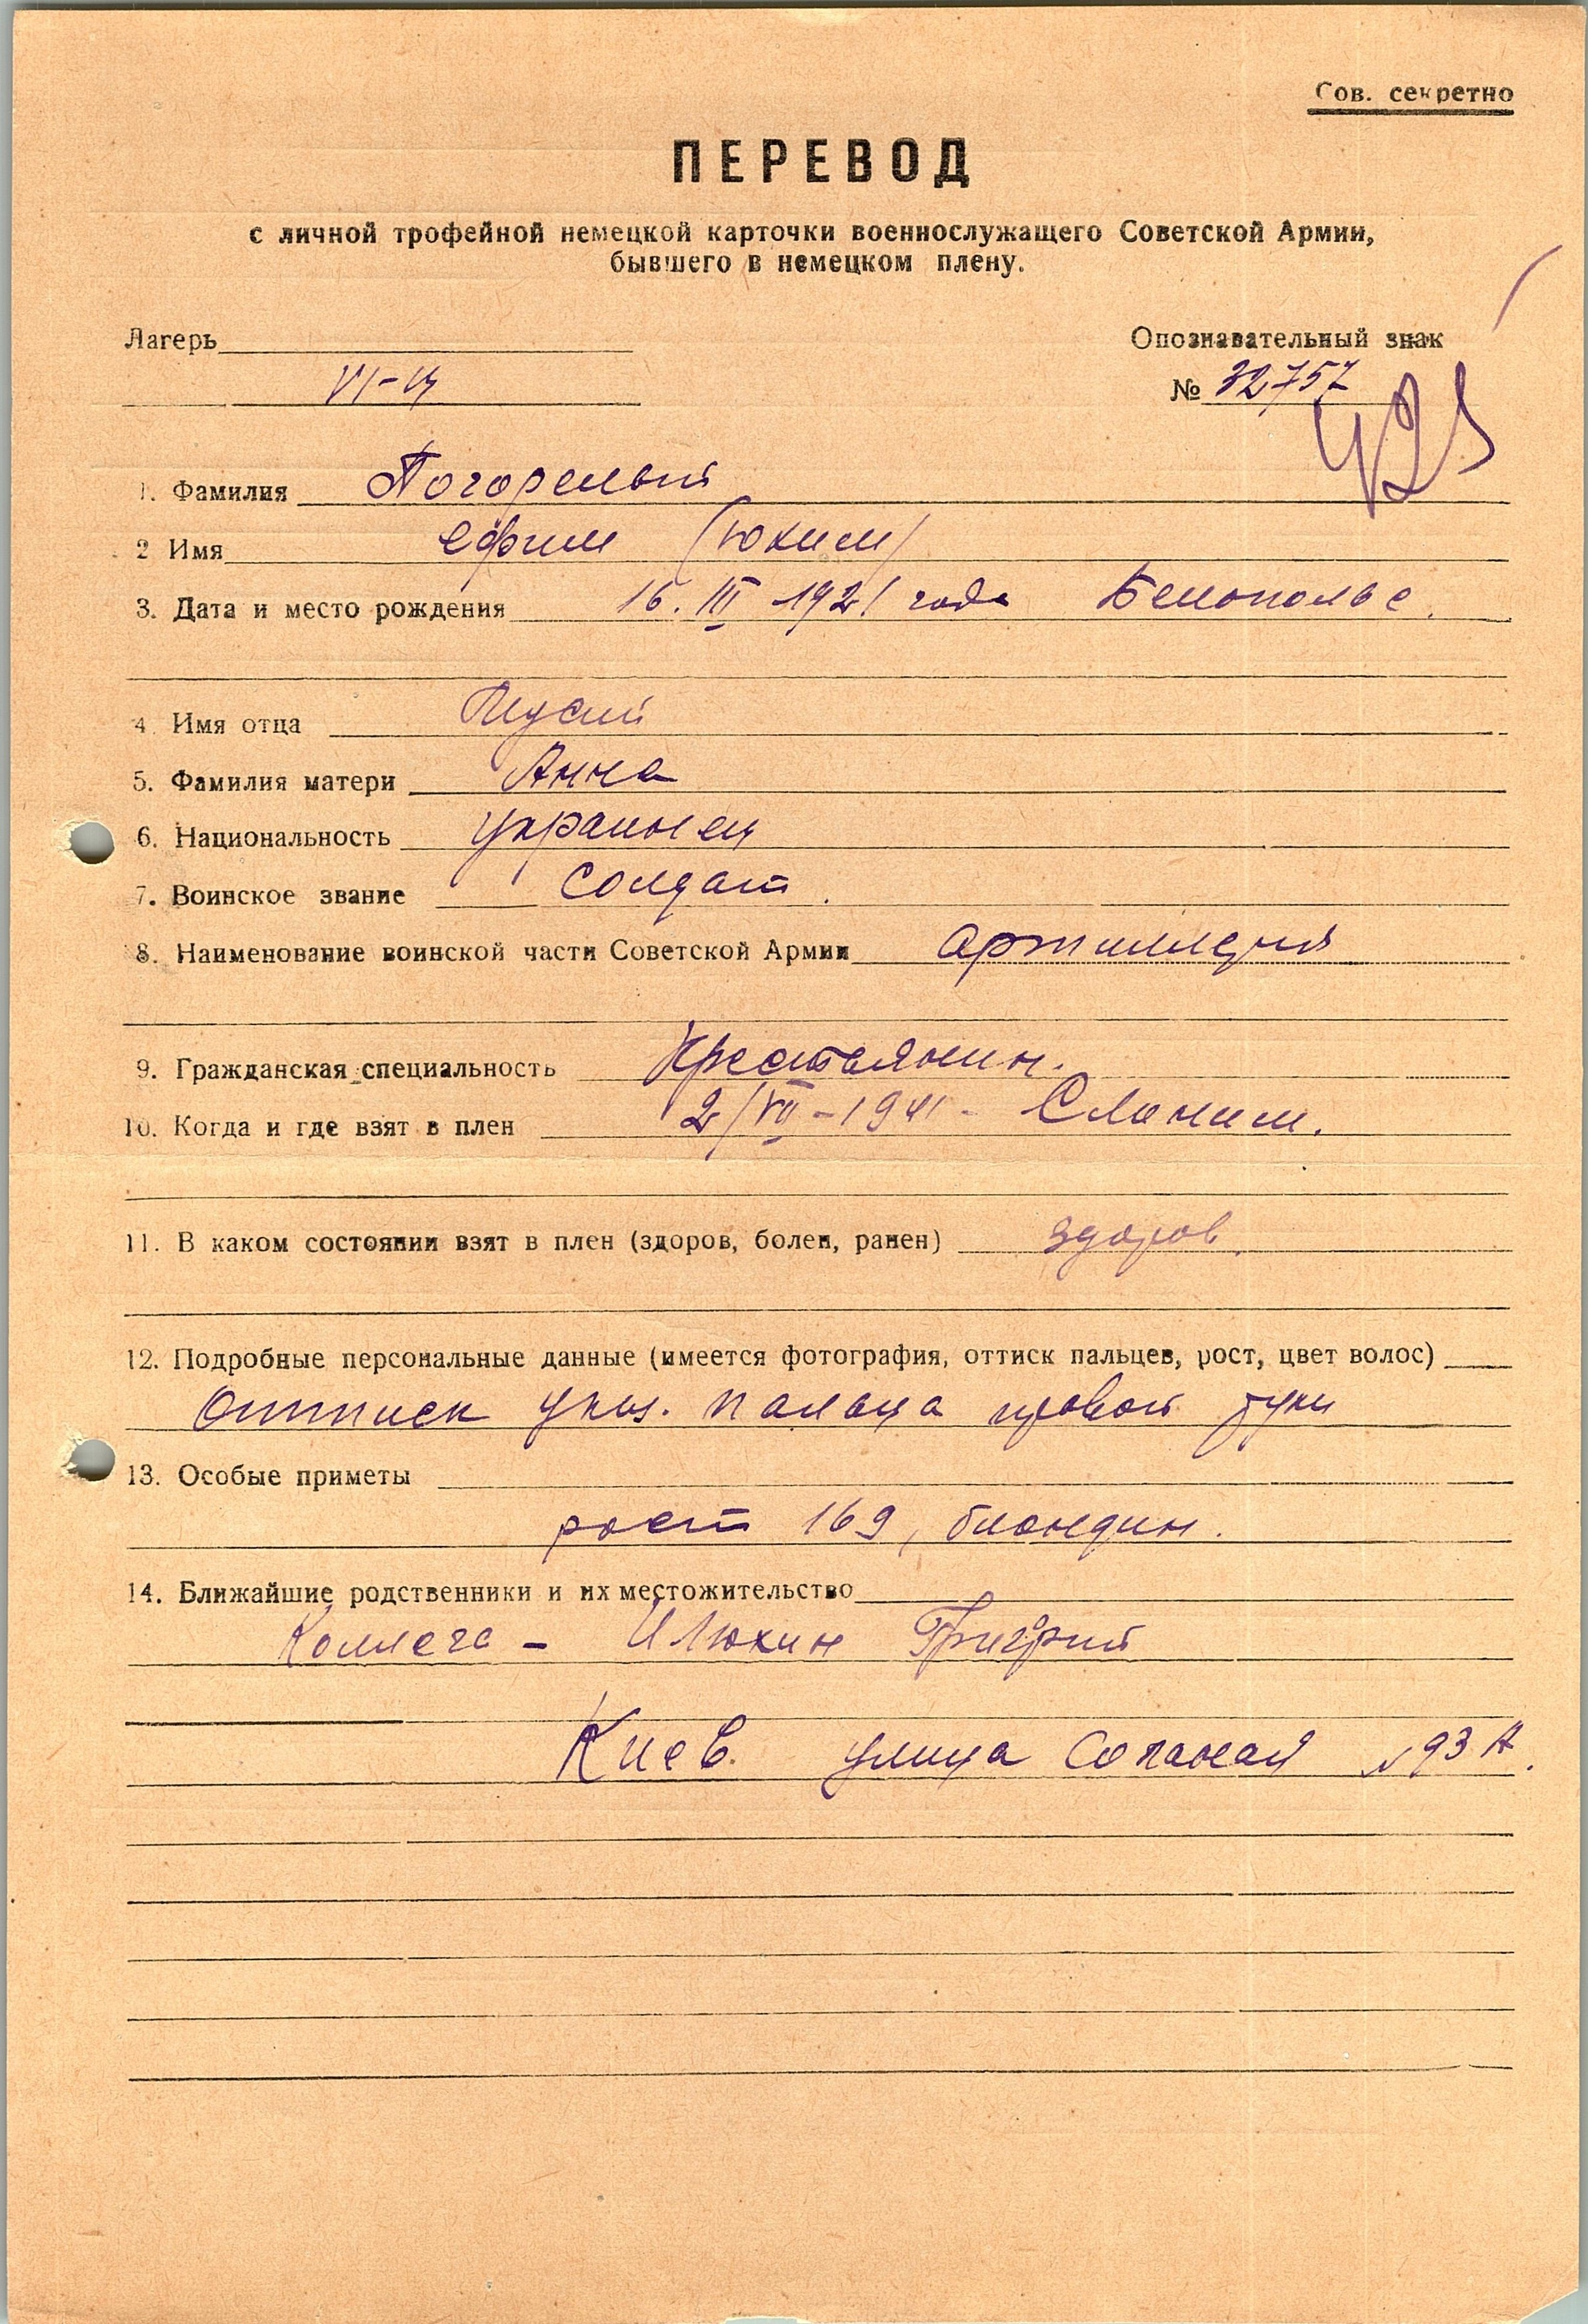 Сов. секретно
ПЕРЕВОД
с личной трофейной немецкой карточки военнослужащего Советской Армии,
бывшего в немецком плену.
Лагерь
Опознавательный знак
VI-Ц
№ 32757
425
1. Фамилия Погорелый
2 Имя Ефим (Юхим)
3. Дата и место рождения 16. III 1921 года Белополье.
4. Имя отца
5. Фамилия матери Анна
6. Национальность украинец
7. Воинское звание солдат.
8. Наименование воинской части Советской Армии артиллерия
9. Гражданская специальность Крестьянин.
10. Когда и где взят в плен 2/VII-1941- Слоним.
11. В каком состоянии взят в плен (здоров, болен, ранен) здоров.
12. Подробные персональные данные (имеется фотография, оттиск пальцев, рост, цвет волос)
Оттиск указ. пальца правой руки
13. Особые приметы
рост 169, блондин.
14. Ближайшие родственники и их местожительство
Коллега - Илюхин Григорий
Киев. улица №93 А.